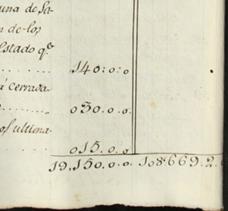 una de Sa-
n de los
Estado qᵉ
140.o.o
á Cerrada-
o30.o.o.
os ultima-
o15.o.o
19.150.o.o. 108.669.2.